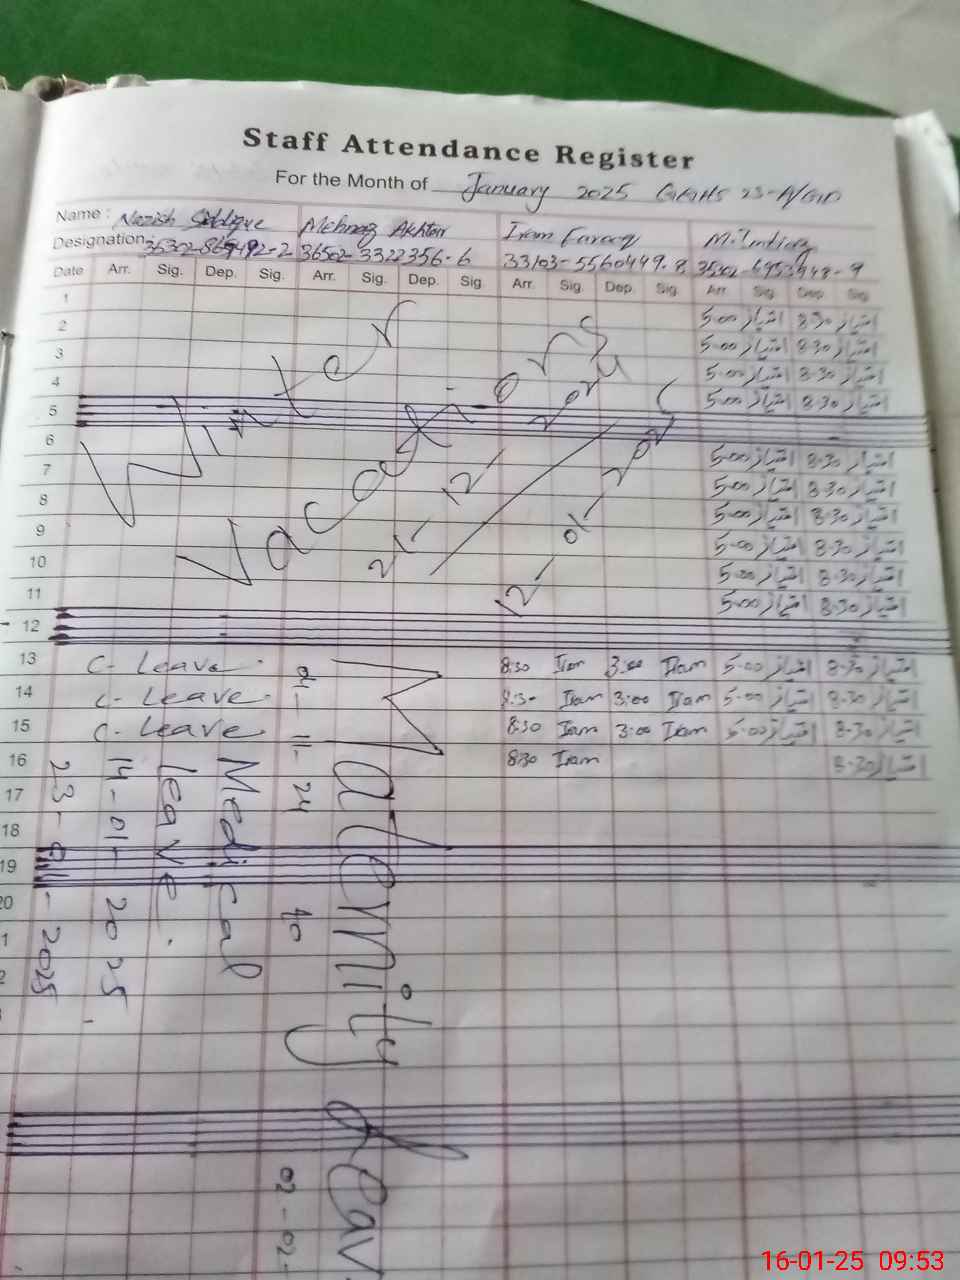 Staff Attendance Register
For the Month of January 2025 GGHS 23-A/GD
Name : Nazish Siddique Mehnaz Akhtar Iram Farooq M. Imtiaz
Designation 36502-3322356-6 33103-5560449-8
Date Arr. Sig. Dep. Sig. Arr. Sig. Dep. Sig. Arr. Sig. Dep. Sig. Arr. Sig. Dep. Sig.
1 5:00 امتیاز 8:30 امتیاز
2 5:00 امتیاز 8:30 امتیاز
3 5:00 امتیاز 8:30 امتیاز
4 5:00 امتیاز 8:30 امتیاز
5
6 5:00 امتیاز 8:30 امتیاز
7 5:00 امتیاز 8:30 امتیاز
8 5:00 امتیاز 8:30 امتیاز
9 5:00 امتیاز 8:30 امتیاز
10 5:00 امتیاز 8:30 امتیاز
11 5:00 امتیاز 8:30 امتیاز
12
Winter
Vacations
21-12-2024
12-01-2025
13 C-Leave 8:30 Iram 3:00 Iram 5:00 امتیاز 8:30 امتیاز
14 C-Leave 8:30 Iram 3:00 Iram 5:00 امتیاز 8:30 امتیاز
15 C-Leave 8:30 Iram 3:00 Iram 5:00 امتیاز 8:30 امتیاز
16 8:30 Iram 8:30 امتیاز
17
18
19
20
1
2
Medical
Leave.
14-01-2025
23-01-2025
Maternity Leav
04-11-24 to 02-02-
16-01-25 09:53